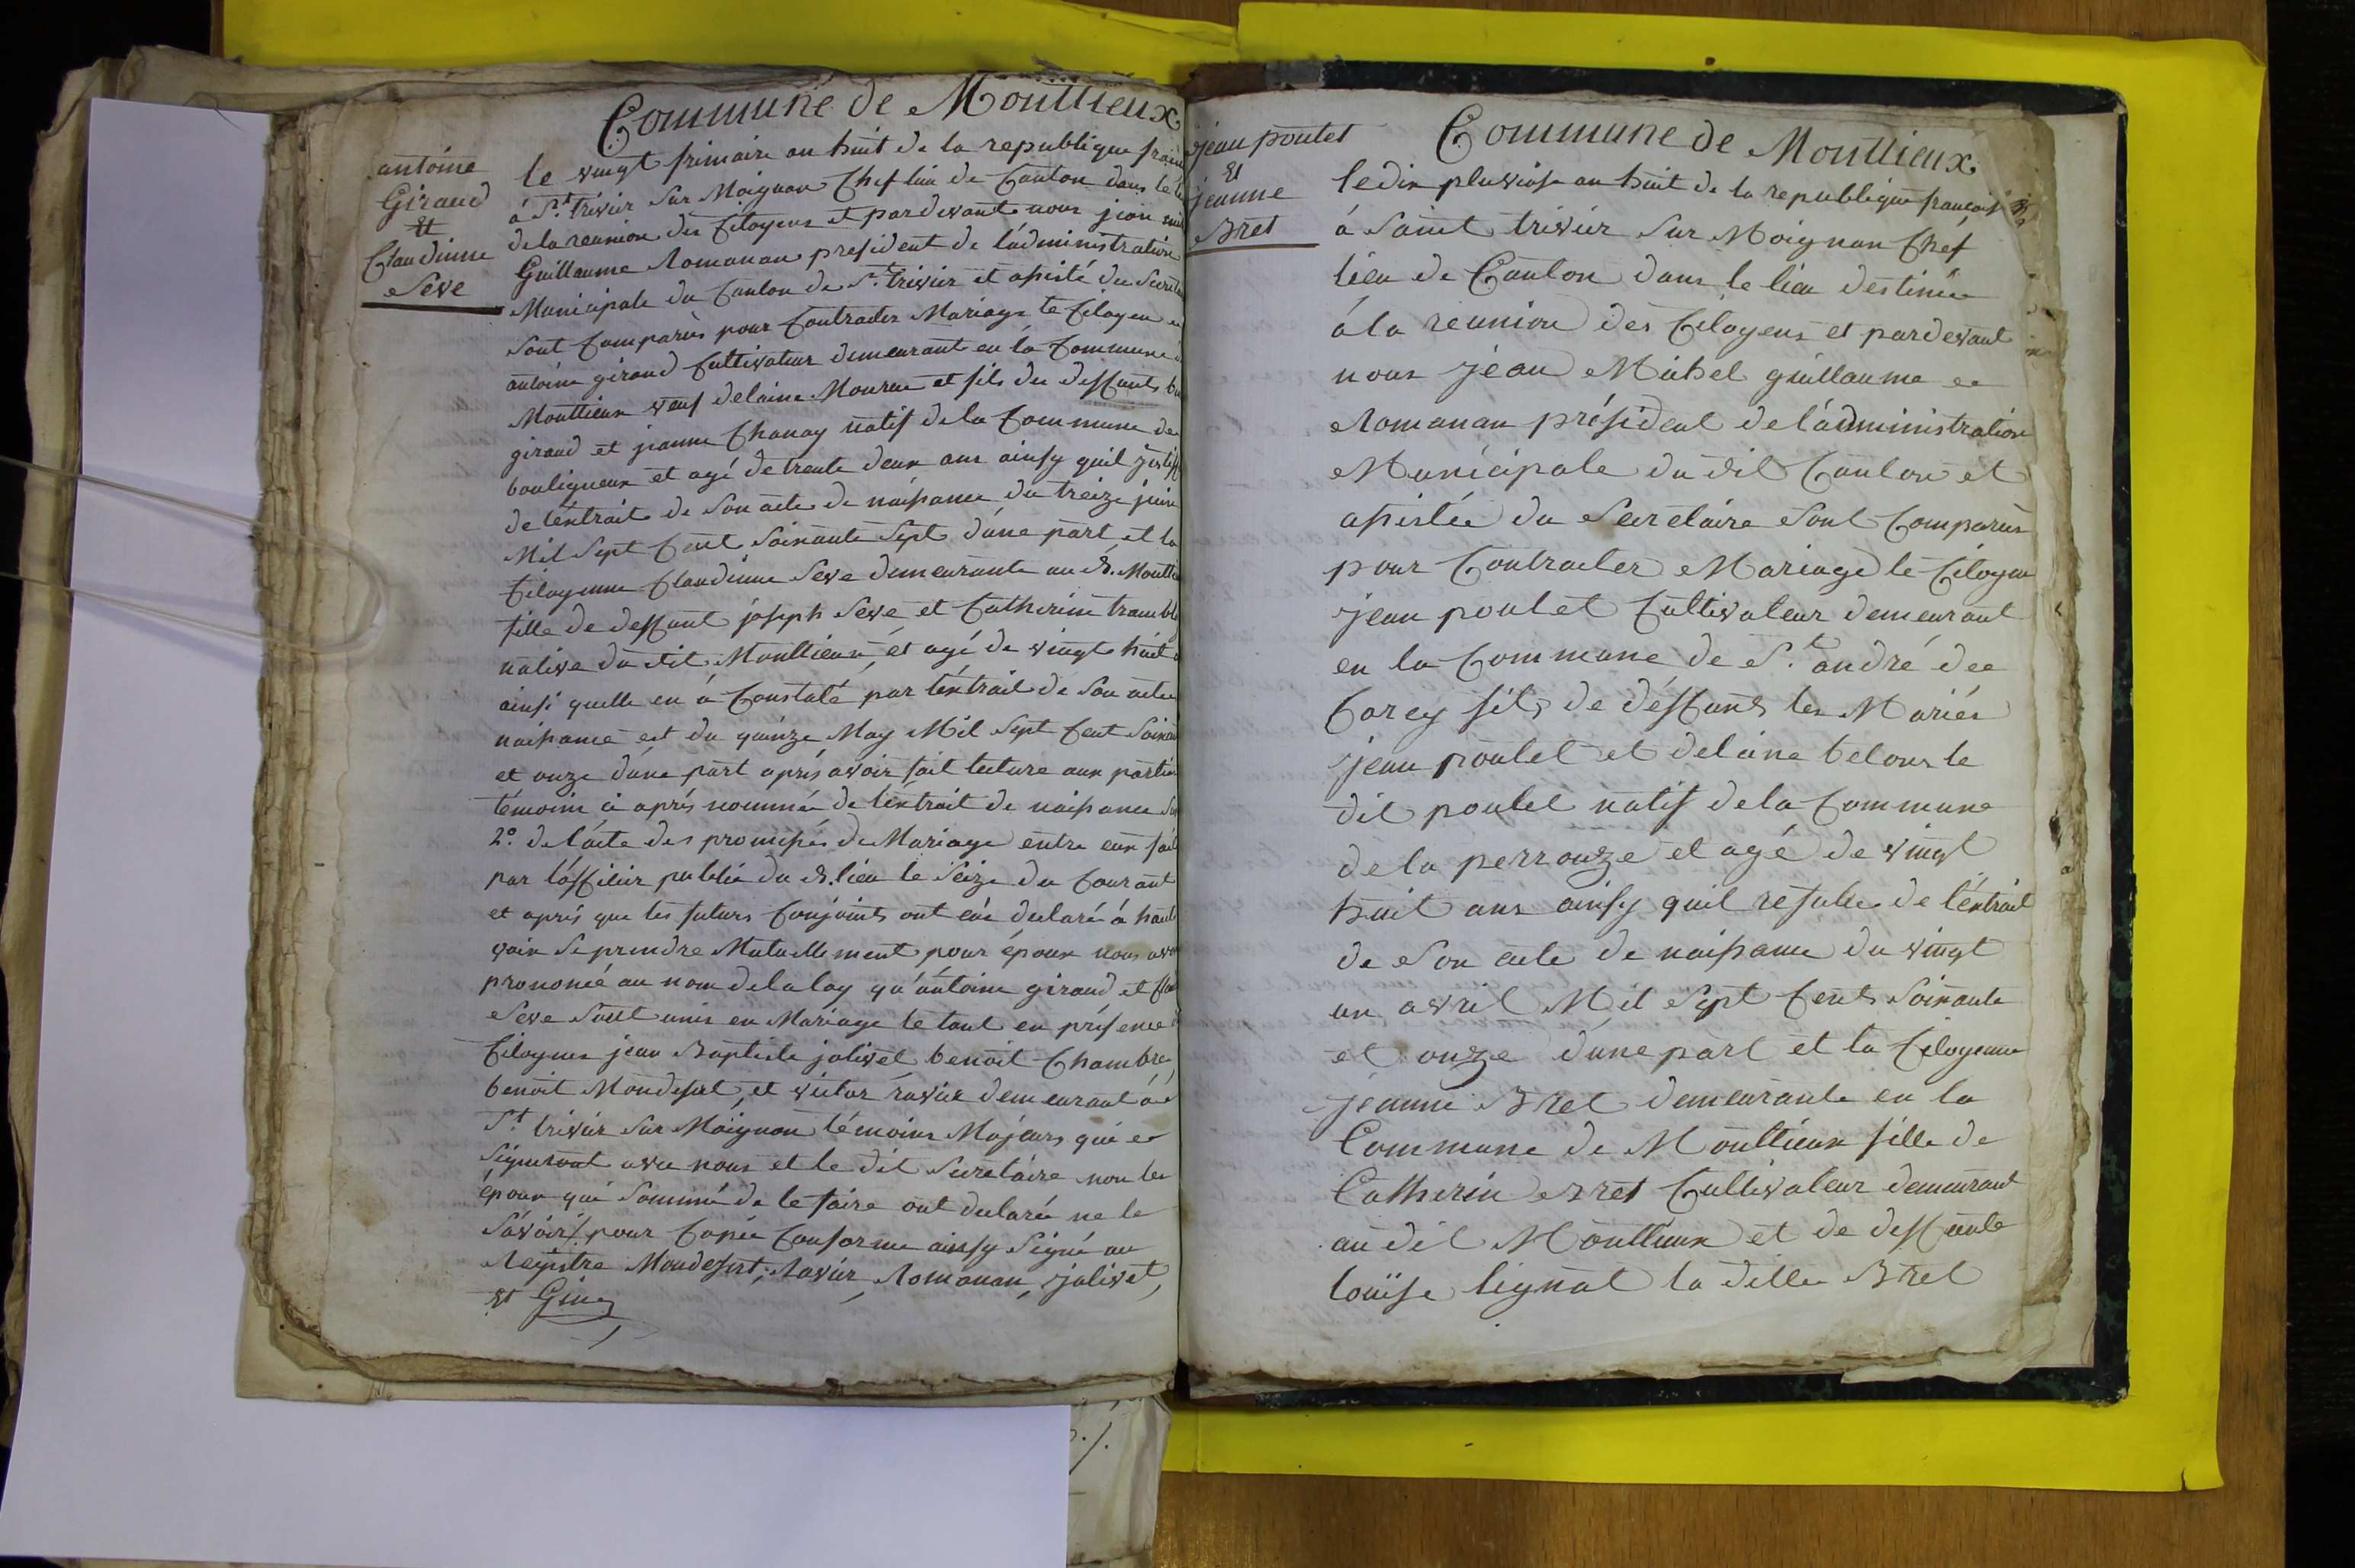 Commune de Monttieux
antoine
Giraud
Et
Claudinne
Seve
le vingt frimaire an huit de la republique
à St. trivier sur Moignan Chef lieu de Canton dans le
de la reunion des Citoyens et pardevant nous jean
Guillaume Romanan president de l'administration
Municipale du Canton de St. trivier et assisté du
sont Comparûs pour Contracter Mariage le Citoyen
antoine giraud Cultivateur demeurant en la Commune
Monttieux veuf delaine Mouru et fils du deffunt
giraud et jeanne Chanay natif de la Commune de
bouligneux et agé de trente deux ans ainsy quil
de l'extrait de son acte de naissance du treize juin
Mil sept Cent soixante sept d'une part et la
Citoyenne Claudinne Seve demeurante au d.
fille de deffunt joseph Seve et Catherine
native du dit Monttieux, et agé de vingt huit
ainsi quelle en à Constaté par l'extrait de son acte
naissance est du quinze May Mil sept Cent
et onze d'une part après avoir fait lecture aux
témoins ci après nommée de l'extrait de naissance
2o. de l'acte des promesses de Mariage entre eux
par l'officier publié du d. lieu le seize du Courant
et après que les futurs Conjoints ont eûe declaré à
voix se prendre Mutuellement pour époux nous
prononcé au nom de la loy qu'antoine giraud et
Seve sont unis en Mariage le tout en présence
Citoyens jean Baptiste jolivet benoit
benoit Mondesert, et victor ravier demeurant à
St trivier sur Moignan témoins Majeurs qui
signeront avec nous et le dit Secretaire non les
époux qui sommé de le faire ont declaré ne le
sávoir/. pour Copie Conforme ainsy signé au
Registre Mondesert, Ravier, Romanan, jolivet,
et
Commune de Monttieux
jean poulet
Et
jeanne
Bret
le dix pluviose an huit de la republique française
à Saint trivier sur Moignan Chef
lieu de Canton dans le lieu destinée
à la reunion des Citoyens et pardevant
nous jean Michel guillaume
Romanan président de l'administration
Municipale du dit Canton et
assistée du Secretaire sont Comparûs
pour Contracter Mariage le Citoyen
jean poulet Cultivateur demeurant
en la Commune de St. andré de
Corcy fils de déffunts les Mariés
jean poulet et delaine belous le
dit poulet natif de la Commune
de la perrouze et agé de vingt
huit ans ainsy quil resulte de l'éxtrait
de son acte de naissance du vingt
un avril Mil sept Cents soixante
et onze d'une part et la Citoyenne
jeanne Bret demeurante en la
Commune de Monttieux fille de
Catherin Bret Cultivateur demeurant
au dit Monttieux et de deffunte
louïse lignat la ditte Bret